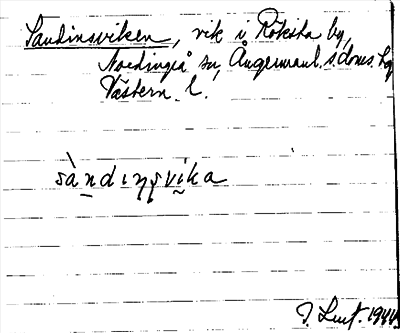 Sandinsviken, vik i Röksta by,
Nordingrå sn, Ångermanl. s. doms. hg
Västern. l.
sàndiŋsvika
1944